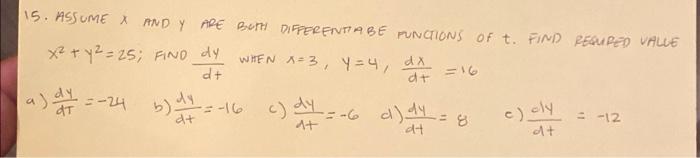 15. ASSUME X AND Y ARE BOTH DIFFERENTIABE FUNCTIONS OF t. FIND REQUIRED VALUE
x² + y² = 25; FIND dy/dt WHEN x = 3, y = 4, dx/dt = 16
a) dy/dt = -24 b) dy/dt = -16 c) dy/dt = -6 d) dy/dt = 8 e) dy/dt = -12